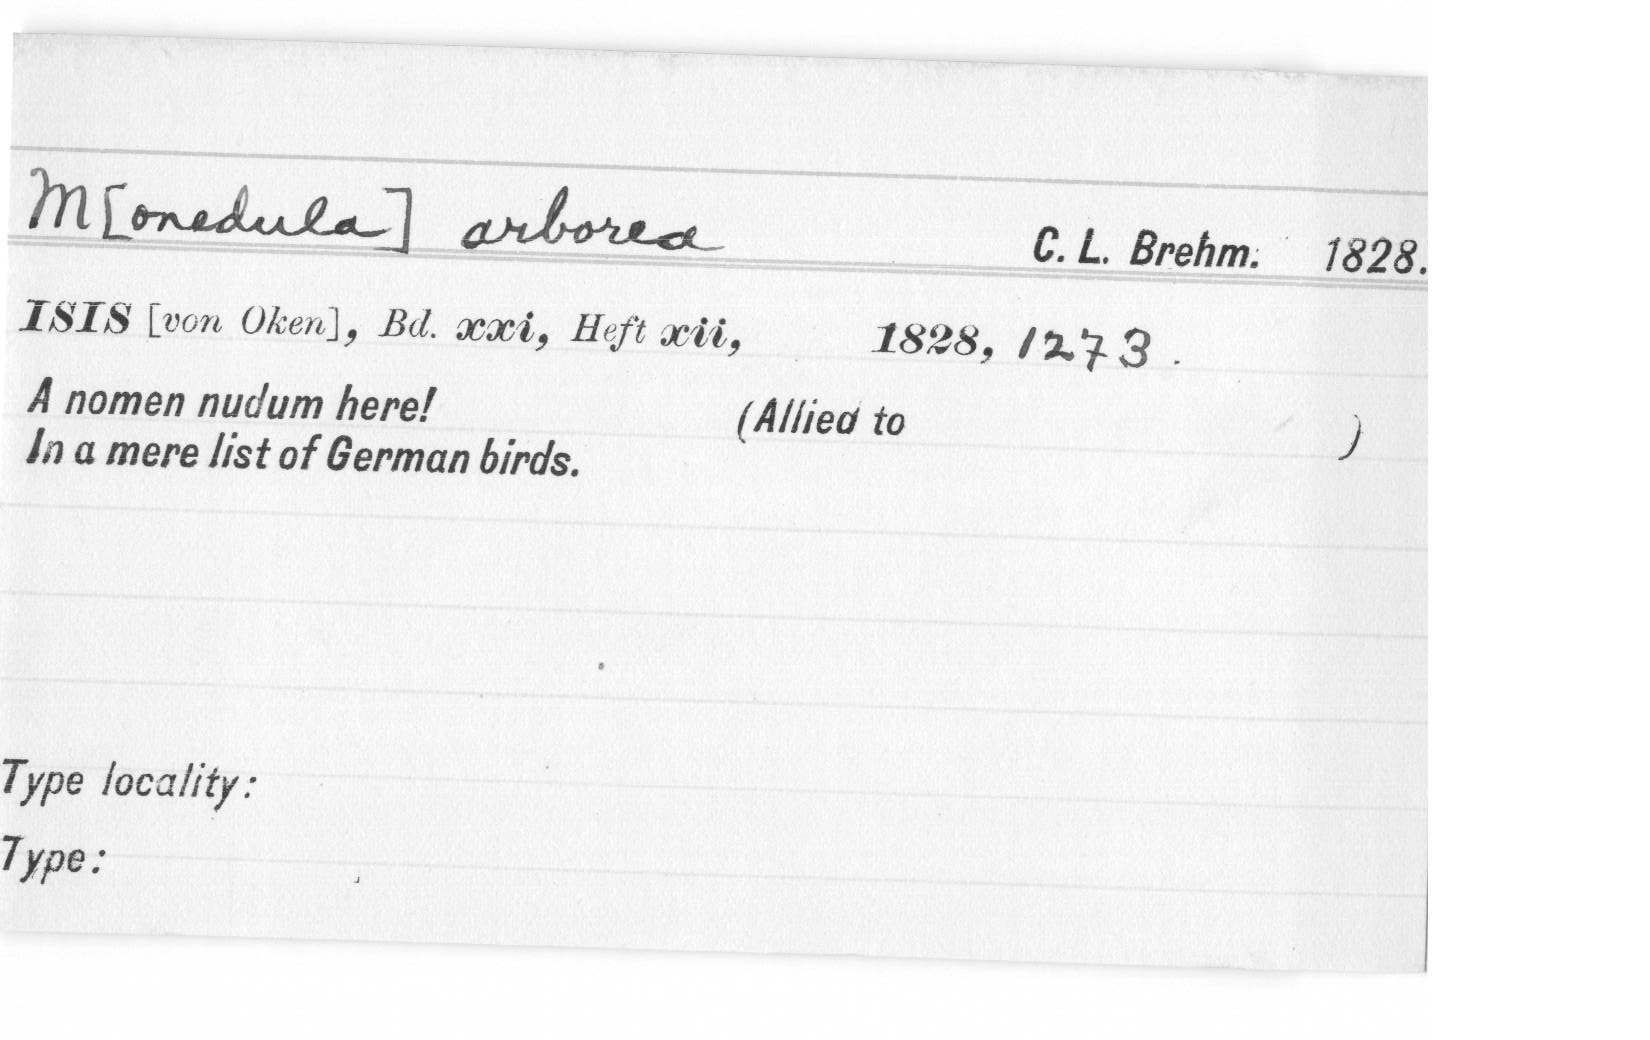 M[onedula] arborea C. L. Brehm. 1828.
ISIS [von Oken], Bd. xxi, Heft xii, 1828, 1273.
A nomen nudum here! (Allied to )
In a mere list of German birds.
Type locality:
Type: